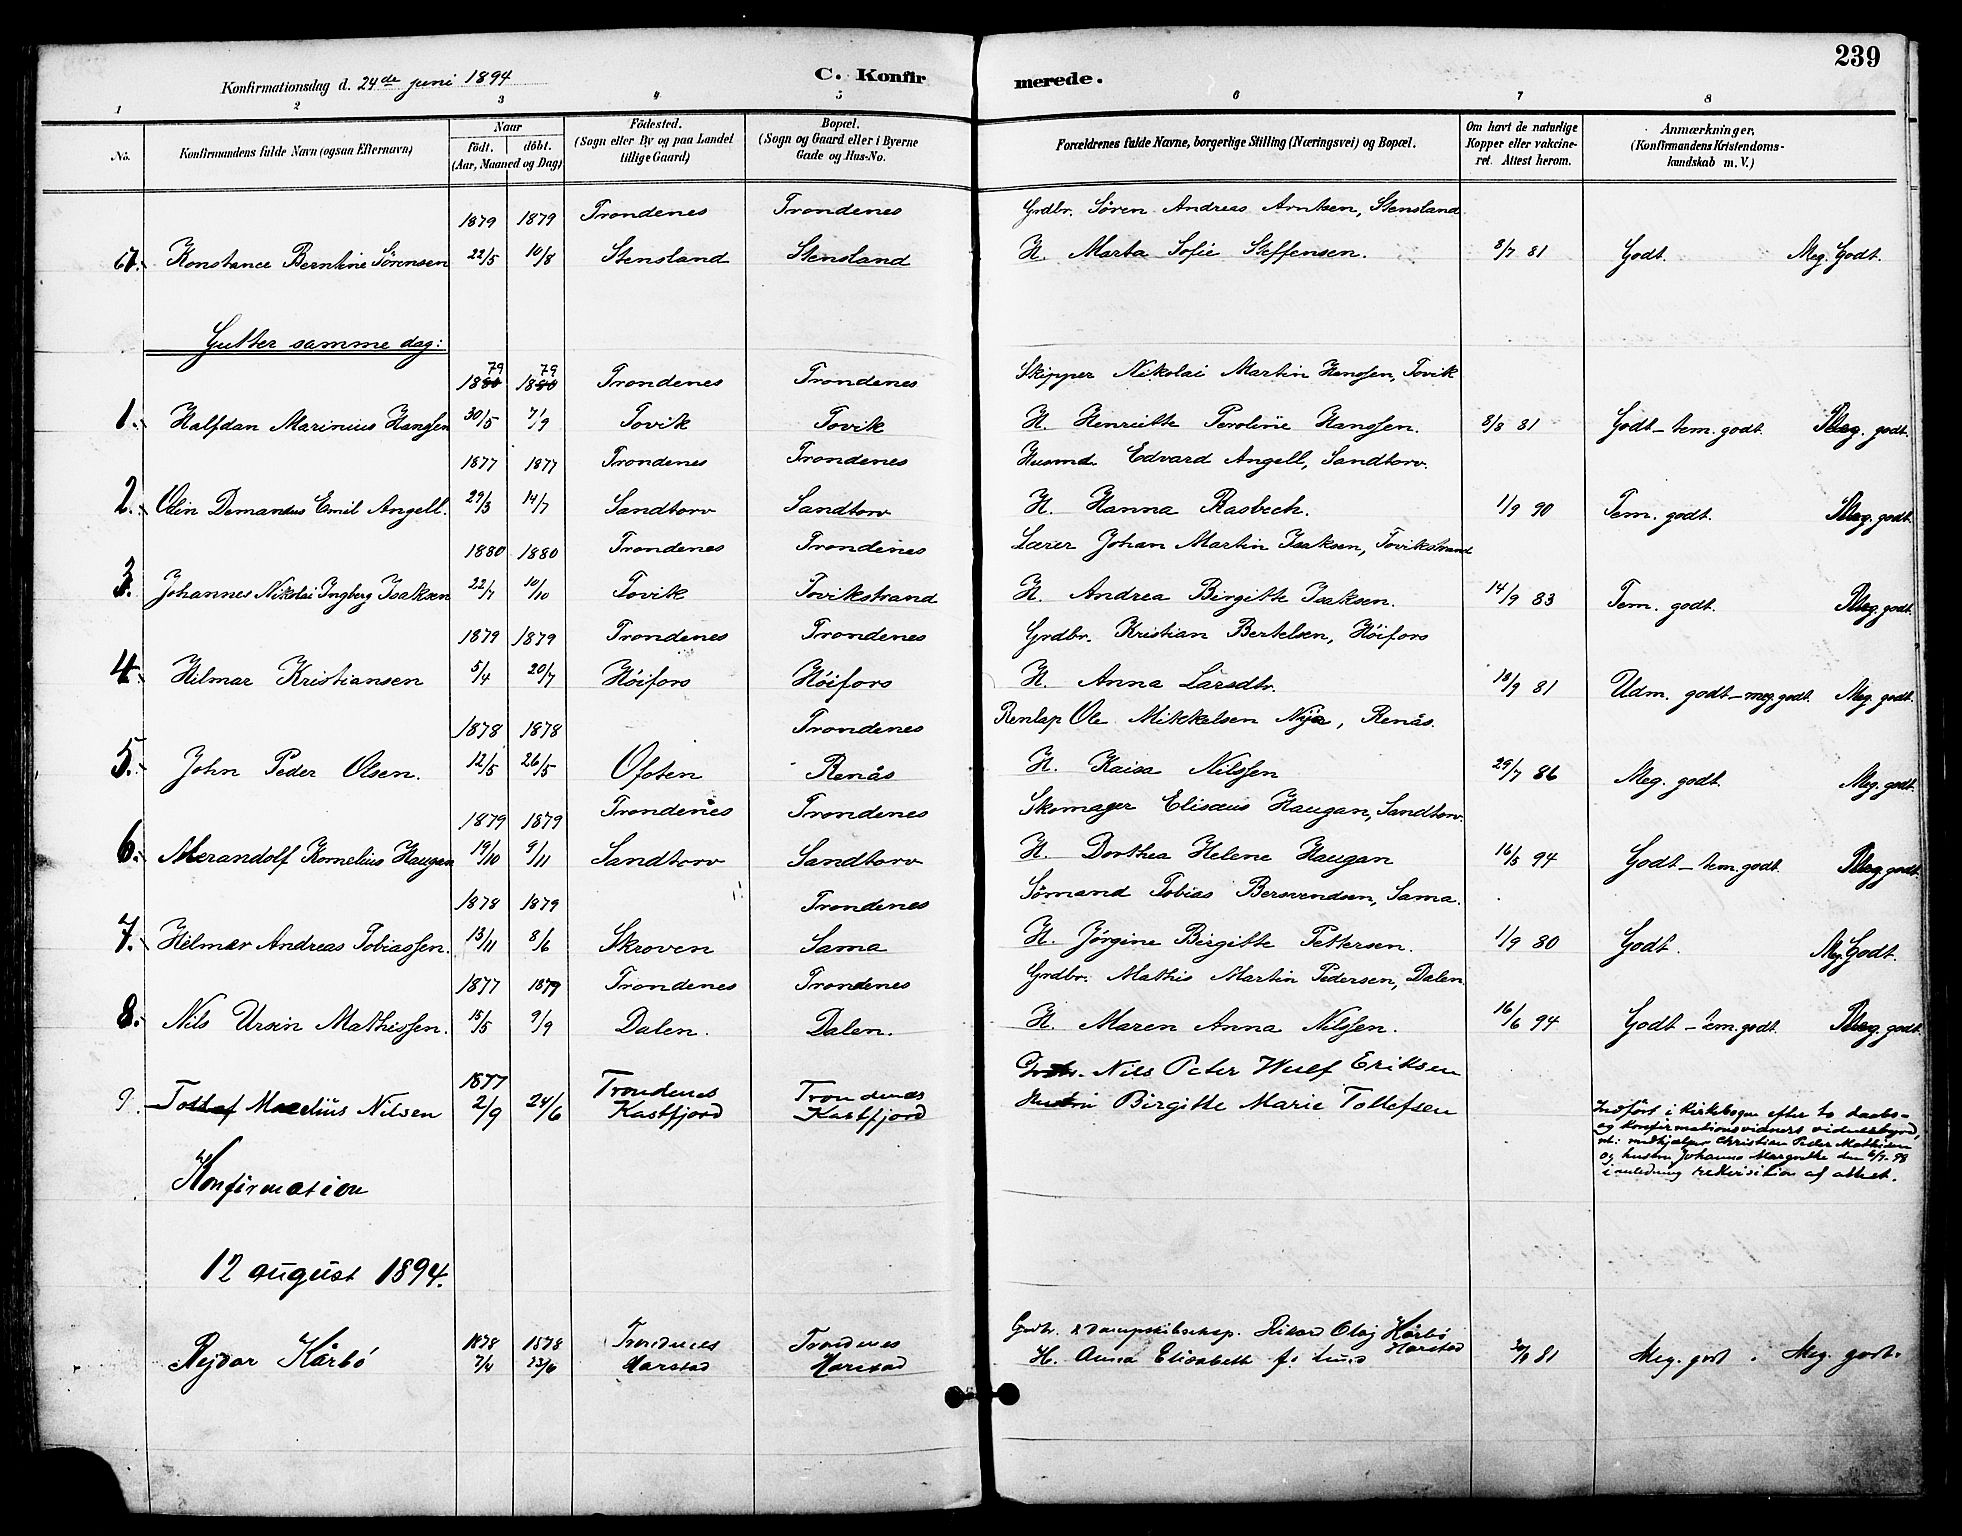 239
Konfirmationsdag d. 24de juni 1894
C. Konfirmerede.
1 2 3 4 5 6 7 8
No.
Konfirmandens fulde Navn (ogsaa Efternavn)
Naar
födt. döbt.
(Aar, Maaned og Dag)
Födested.
(Sogn eller By og paa Landet
tillige Gaard)
Bopæl.
(Sogn og Gaard eller i Byerne
Gade og Hus-No.
Forældrenes fulde Navne, borgerlige Stilling (Næringsvei) og Bopæl.
Om havt de naturlige
Kopper eller vakcine-
ret. Attest herom.
Anmærkninger,
(Konfirmandens Kristendoms-
kundskab m. V.)
1879 1879 Trondenes Trondenes Grdbr. Sören Andreas Arntsen, Stensland
67. Konstance Berntine Sörensen 22/5 10/8 Stensland Stensland H. Marta Sofie Steffensen. 8/7 81 Godt. Meg. Godt.
Gutter samme dag:
79 79
1880 1880 Trondenes Trondenes Skipper Nikolai Martin Hanssen, Tovik
1. Halfdan Marinius Hanssen 30/5 7/9 Tovik Tovik H. Henriette Peroline Hanssen. 8/8 81 Godt - tem. godt. Meg. godt.
1877 1877 Trondenes Trondenes Husmd. Edvard Angell, Sandtorv.
2. Olin Demandus Emil Angell. 29/3 14/7 Sandtorv Sandtorv H. Hanna Rasbech. 1/9 90 Tem. godt. Meg. godt.
1880 1880 Trondenes Trondenes Lærer Johan Martin Isaksen, Tovikstrand
3. Johannes Nikolai Ingberg Isaksen 22/7 10/10 Tovik Tovikstrand H. Andrea Birgitte Isaksen. 14/9 83 Tem. godt. Meg. godt.
1879 1879 Trondenes Trondenes Grdbr. Kristian Bertelsen, Höifors
4. Hilmar Kristiansen 5/4 20/7 Höifors Höifors H. Anna Larsdtr. 18/9 81 Udm. godt - meg. godt. Meg. godt.
1878 1878 Trondenes Renlap Ole Mikkelsen Nija, Renås.
5. John Peder Olsen. 12/5 26/5 Ofoten Renås H. Kaisa Nilssen 29/7 86 Meg. godt. Meg. godt.
1879 1879 Trondenes Trondenes Skomager Elisæus Haugan, Sandtorv.
6. Merandolf Kornelius Haugan 19/10 9/11 Sandtorv Sandtorv H. Dorthea Helene Haugan 16/5 94 Godt - tem. godt. Meg. godt.
1878 1879 Trondenes Sömand Tobias Bersvendsen, Sama.
7. Hilmar Andreas Tobiassen. 13/11 8/6 Skroven Sama H. Jörgine Birgitte Pettersen. 1/9 80 Godt. Mg. Godt.
1877 1879 Trondenes Trondenes Grdbr. Mathis Martin Pedersen, Dalen
8. Nils Ursin Mathissen. 15/5 9/9 Dalen. Dalen. H. Maren Anna Nilssen. 16/6 94 Godt - tem. godt. Meg. godt.
1877 Trondenes Trondenes Nils Peter Wulf Eriksen
9. Tollef Marelius Nilsen 2/9 24/6 Kastfjord Kastfjord Hustru Birgitte Marie Tollefsen
Indfört i kirkebogen efter to daabs-
og konfirmationsvidners vidnesbyrd,
nl: medhjælper Christian Peder Mathisen
og hustru Johanna Margrethe den 6/7-98
i anledning rekvisition af attest.
Konfirmation
12 august 1894.
1878 1878 Trondenes Trondenes Gaardbr. & dampskibsexp. Rikard Olaj Kårbö
Harstad
Rejdar Kårbö 7/4 23/6 Harstad Harstad H. Anna Elisabeth f. Lund 81 Meg. godt. Meg. godt.